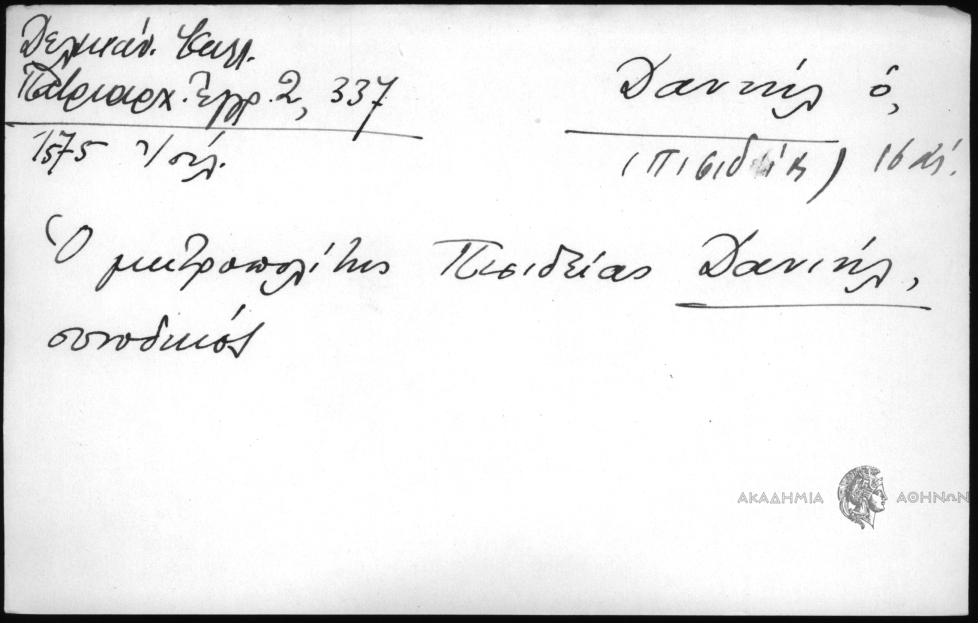 Δελικάν. Καλλ.
Πατριαρχ. Ἔγγρ. 2, 337
1575 Ἰούλ.
Δανιήλ ὁ,
(Πισιδείας) 16 αἰ.
Ὁ μητροπολίτης Πισιδείας Δανιήλ,
συνοδικός
ΑΚΑΔΗΜΙΑ ΑΘΗΝΩΝ